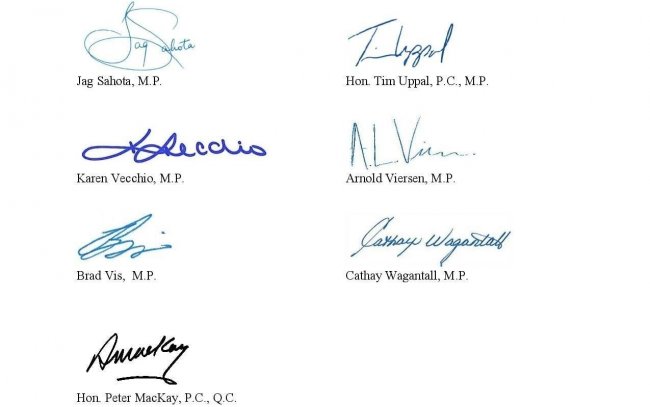 Jag Sahota
Tim Uppal
Jag Sahota, M.P.
Hon. Tim Uppal, P.C., M.P.
K Vecchio
A.L. Viersen
Karen Vecchio, M.P.
Arnold Viersen, M.P.
Cathay Wagantall
Brad Vis,  M.P.
Cathay Wagantall, M.P.
PMacKay
Hon. Peter MacKay, P.C., Q.C.